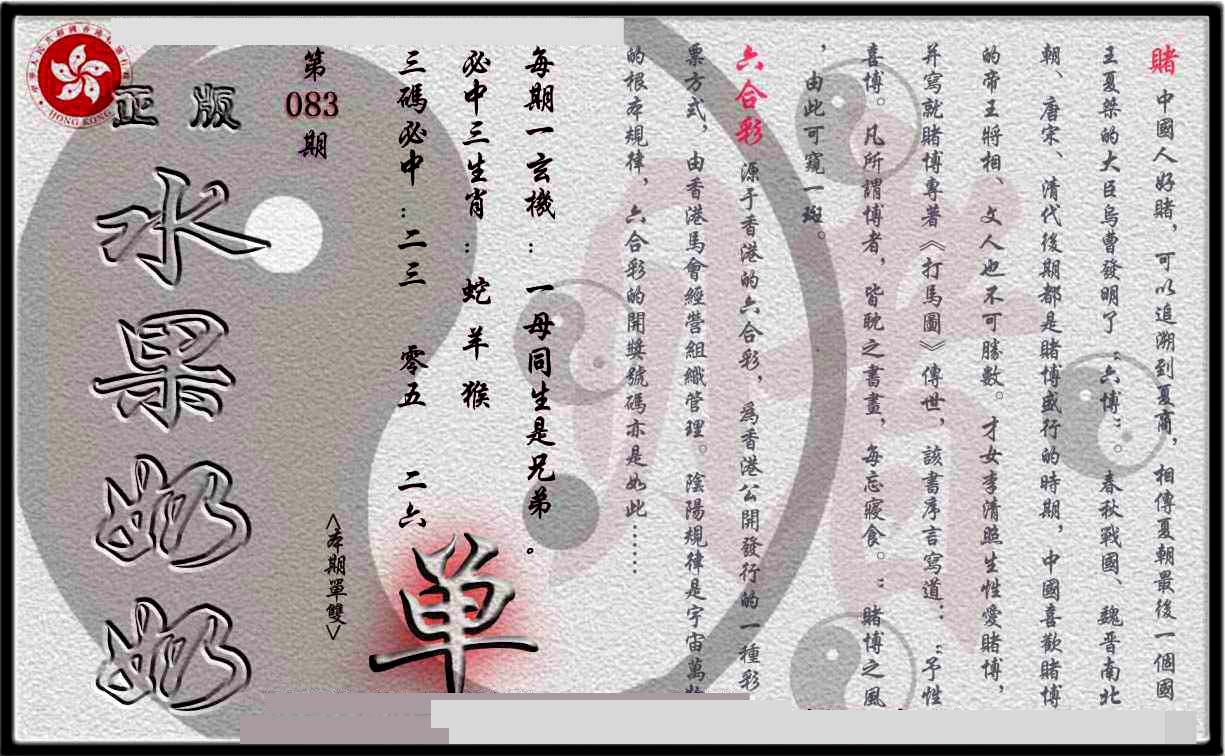 賭 中國人好賭，可以追溯到夏商，相傳夏朝最後一個國
王夏桀的大臣烏曹發明了“六博”。春秋戰國、魏晋南北
朝、唐宋、清代後期都是賭博盛行的時期，中國喜歡賭博
的帝王將相、文人也不可勝數。才女李清照生性愛賭博，
并寫就賭博專著《打馬圖》傳世，該書序言寫道：“予性
喜博。凡所謂博者，皆耽之書畫，每忘寢食。：賭博之風
，由此可窺一斑。
六合彩 源于香港的六合彩，為香港公開發行的一種彩
票方式，由香港馬會經營組織管理。陰陽規律是宇宙萬物
的根本規律，六合彩的開獎號碼亦是如此……
每期一玄機：一母同生是兄弟。
必中三生肖：蛇 羊 猴
三碼必中：二三 零五 二六
<本期單雙>
单
第
083
期
正版
水果奶奶
HONG KONG